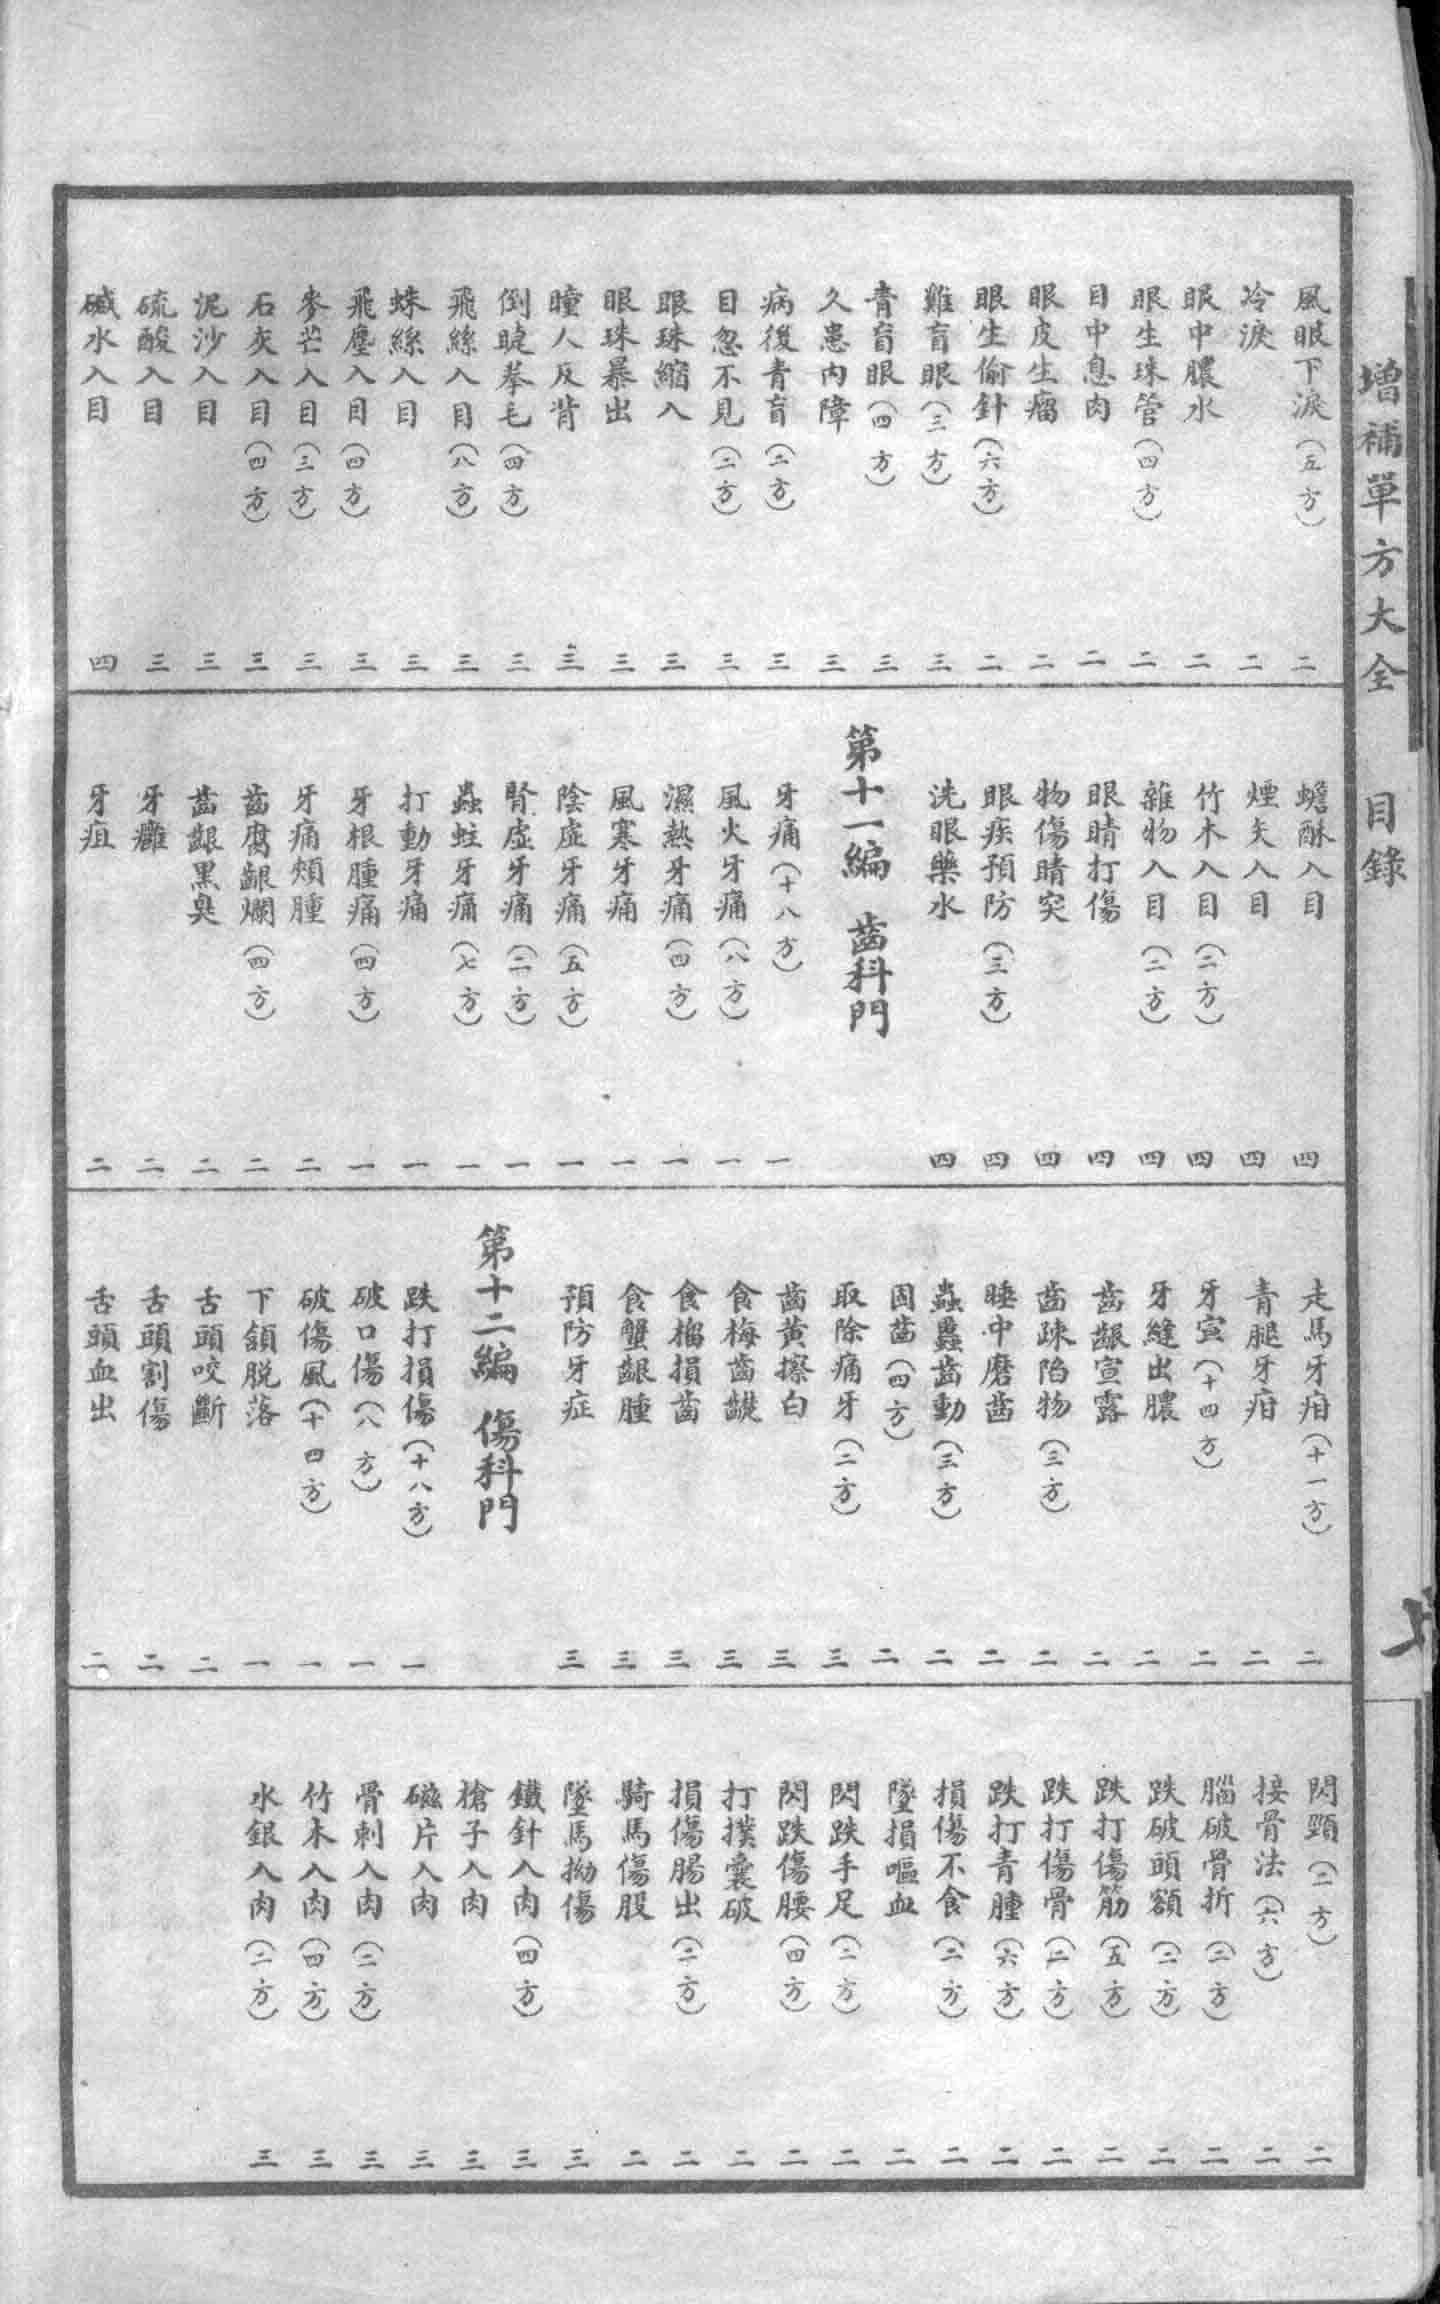 增補單方大全 目錄
風眼下淚(五方) 二
冷淚 二
眼中膿水 二
眼生珠管(四方) 二
目中息肉 二
眼皮生瘤 二
眼生偷針(六方) 二
雞盲眼(三方) 三
青盲眼(四方) 三
久患內障 三
病後青盲(二方) 三
目忽不見(二方) 三
眼珠縮入 三
眼珠暴出 三
瞳人反背 三
倒睫拳毛(四方) 三
飛絲入目(八方) 三
蛛絲入目 三
飛塵入目(四方) 三
麥芒入目(三方) 三
石灰入目(四方) 三
泥沙入目 三
硫酸入目 三
碱水入目 四
蟾酥入目 四
煙矢入目 四
竹木入目(二方) 四
雜物入目(二方) 四
眼睛打傷 四
物傷睛突 四
眼疾預防(三方) 四
洗眼藥水 四
第十一編 齒科門
牙痛(十八方) 一
風火牙痛(八方) 一
濕熱牙痛(四方) 一
風寒牙痛 一
陰虛牙痛(五方) 一
腎虛牙痛(二方) 一
蟲蛀牙痛(七方) 一
打動牙痛 一
牙根腫痛(四方) 一
牙痛頰腫 二
齒腐齦爛(四方) 二
齒齦黑臭 二
牙癰 二
牙疽 二
走馬牙疳(十一方) 二
青腿牙疳 二
牙宣(十四方) 二
牙縫出膿 二
齒齦宣露 二
齒疎陷物(三方) 二
睡中磨齒 二
蟲䘌齒動(三方) 二
固齒(四方) 二
取除痛牙(二方) 三
齒黃擦白 三
食梅齒䶢 三
食榴損齒 三
食蟹齦腫 三
預防牙症 三
第十二編 傷科門
跌打損傷(十八方) 一
破口傷(八方) 一
破傷風(十四方) 一
下頷脫落 一
舌頭咬斷 二
舌頭割傷 二
舌頭血出 二
閃頸(二方) 二
接骨法(六方) 二
腦破骨折(二方) 二
跌破頭額(二方) 二
跌打傷筋(五方) 二
跌打傷骨(二方) 二
跌打青腫(六方) 二
損傷不食(二方) 二
墜損嘔血 二
閃跌手足(二方) 二
閃跌傷腰(四方) 二
打撲囊破 二
損傷腸出(二方) 二
騎馬傷股 二
墜馬拗傷 三
鐵針入肉(四方) 三
槍子入肉 三
磁片入肉 三
骨刺入肉(二方) 三
竹木入肉(四方) 三
水銀入肉(二方) 三